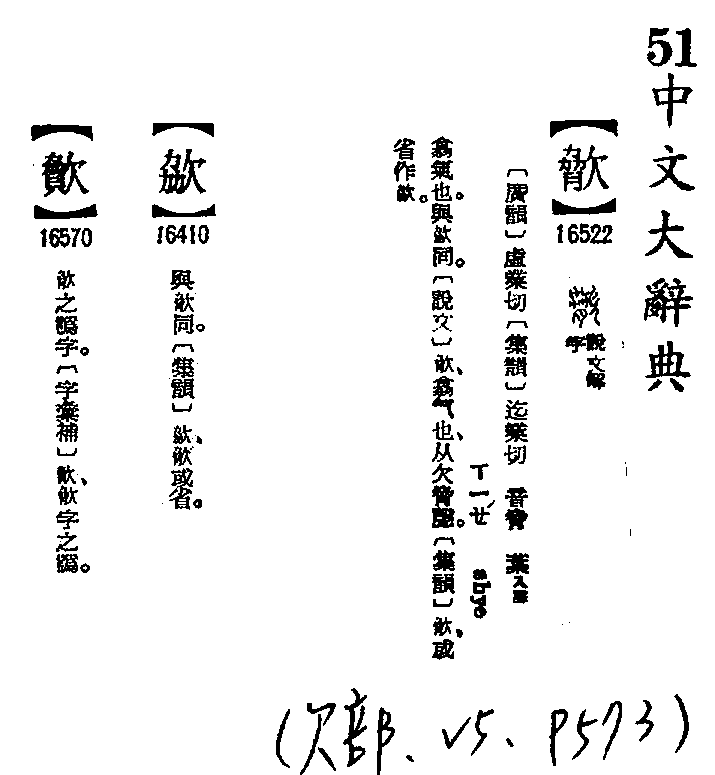 51中文大辭典
【㰼】
16522
說文解
字
〔廣韻〕虛業切〔集韻〕迄業切 音脅 葉入聲
ㄒㄧㄝˊ shye
翕氣也。與同。〔說文〕㰼、翕气也、从欠脅聲。〔集韻〕㰼、或
省作。
【】
16410
與㰼同。〔集韻〕㰼、或省。
【】
16570
㰼之譌字。〔字彙補〕、㰼字之譌。
(欠部、V5、P573)